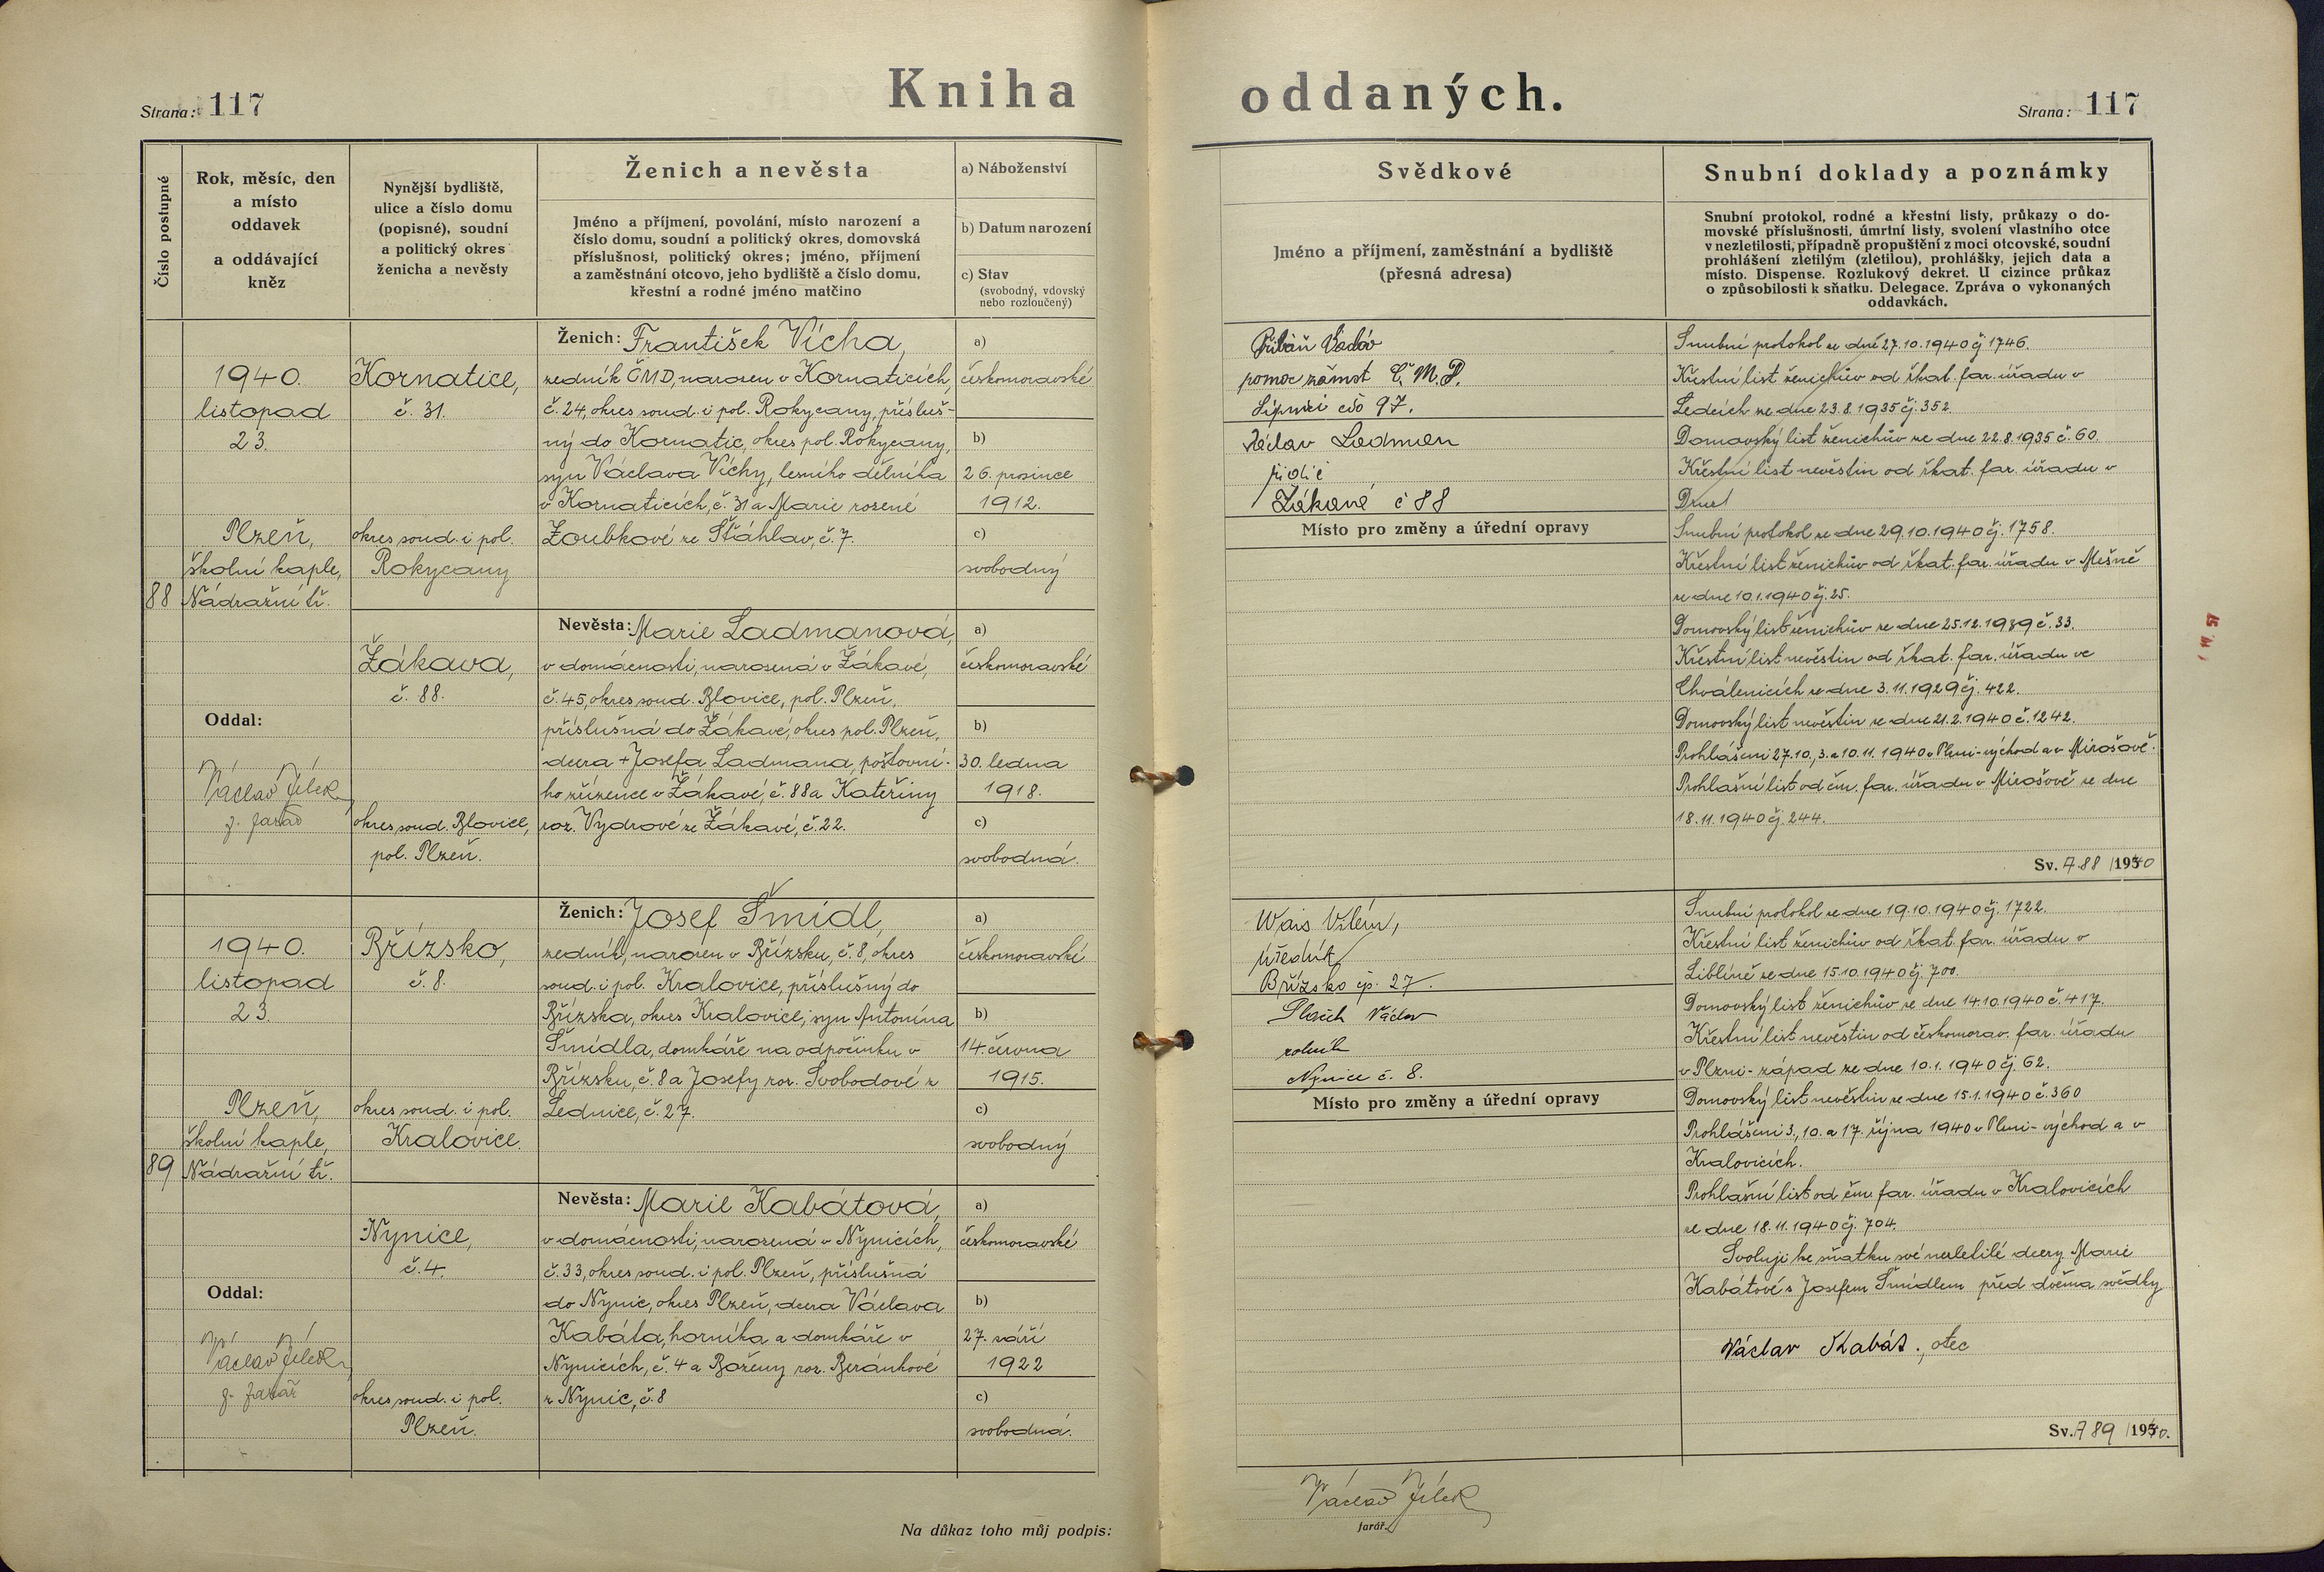 Kniha oddaných.
Strana: 117
Strana: 117
Číslo postupné
Rok, měsíc, den
a místo
oddavek
a oddávající
kněz
Nynější bydliště,
ulice a číslo domu
(popisné), soudní
a politický okres
ženicha a nevěsty
Ženich a nevěsta
Jméno a příjmení, povolání, místo narození a
číslo domu, soudní a politický okres, domovská
příslušnost, politický okres; jméno, příjmení
a zaměstnání otcovo, jeho bydliště a číslo domu,
křestní a rodné jméno matčino
a) Náboženství
b) Datum narození
c) Stav
(svobodný, vdovský
nebo rozloučený)
Svědkové
Jméno a příjmení, zaměstnání a bydliště
(přesná adresa)
Snubní doklady a poznámky
Snubní protokol, rodné a křestní listy, průkazy o do-
movské příslušnosti, úmrtní listy, svolení vlastního otce
v nezletilosti, případně propuštění z moci otcovské, soudní
prohlášení zletilým (zletilou), prohlášky, jejich data a
místo. Dispense. Rozlukový dekret. U cizince průkaz
o způsobilosti k sňatku. Delegace. Zpráva o vykonaných
oddavkách.
88
1940.
listopad
23.
Plzeň,
školní kaple,
Nádražní tř.
Oddal:
Václav Jílek
f. farář
Kornatice,
č. 31.
okres soud. i pol.
Rokycany
Žákava,
č. 88.
okres soud. Blovice,
pol. Plzeň.
Ženich: František Vícha,
zedník ČMD, narozen v Kornaticích,
č. 24, okres soud. i pol. Rokycany, přísluš-
ný do Kornatic, okres pol. Rokycany,
syn Václava Víchy, lesního dělníka
v Kornaticích, č. 31 a Marie rozené
Zoubkové ze Šťáhlav, č. 7.
a)
českomoravské
b)
26. prosince
1912.
c)
svobodný
Nevěsta: Marie Ladmanová,
v domácnosti, narozená v Žákavé,
č. 45, okres soud. Blovice, pol. Plzeň,
příslušná do Žákavé, okres pol. Plzeň,
dcera + Josefa Ladmana, poštovní-
ho zřízence v Žákavé, č. 88 a Kateřiny
roz. Vydrové ze Žákavé, č. 22.
a)
českomoravské
b)
30. ledna
1918.
c)
svobodná.
pomoc. zámst Č. M. D.
čís 97.
Václav Ladman
řidič
Žákavé č 88
Místo pro změny a úřední opravy
Snubní protokol ze dne 27.10.1940 čj 1746.
Křestní list ženichův od řkat. far. úřadu v
Ledcích ze dne 23.8.1935 čj. 352.
Domovský list ženichův ze dne 22.8.1935 č. 60.
Křestní list nevěstin od řkat. far. úřadu v
Snubní protokol ze dne 29.10.1940 čj. 1758.
Křestní list ženichův od řkat. far. úřadu v Mešně
ze dne 10.1.1940 čj. 25.
Domovský list ženichův ze dne 25.12.1939 č. 33.
Křestní list nevěstin od řkat. far. úřadu ve
Chválenicích ze dne 3.11.1929 čj. 422.
Domovský list nevěstin ze dne 21.2.1940 č. 1242.
Prohlášeni 27.10., 3. a 10.11. 1940 v Plzni-východ a v Mirošově.
Prohlašní list od čm. far. úřadu v Mirošově ze dne
18.11.1940 čj. 244.
Sv. A 88 /1940
89
1940.
listopad
23.
Plzeň,
školní kaple,
Nádražní tř.
Oddal:
Václav Jílek
f. farář
Břízsko,
č. 8.
okres soud. i pol.
Kralovice.
Nynice,
č. 4.
okres soud. i pol.
Plzeň.
Ženich: Josef Šmídl,
zedník, narozen v Břízsku, č. 8, okres
soud. i pol. Kralovice, příslušný do
Břízska, okres Kralovice, syn Antonína
Šmídla, domkáře na odpočinku v
Břízsku, č. 8 a Josefy roz. Svobodové z
Lednice, č. 27.
a)
českomoravské
b)
14. června
1915.
c)
svobodný
Nevěsta: Marie Kabátová,
v domácnosti, narozená v Nynicích,
č. 33, okres soud. i pol. Plzeň, příslušná
do Nynic, okres Plzeň, dcera Václava
Kabáta, horníka a domkáře v
Nynicích, č. 4 a Boženy roz. Beránkové
z Nynic, č. 8
a)
českomoravské
b)
27. září
1922
c)
svobodná.
Wais Vilém,
úředník
Břízsko čp. 27.
Václav
rolník
Nynice č. 8.
Místo pro změny a úřední opravy
Snubní protokol ze dne 19.10.1940 čj. 1722.
Křestní list ženichův od řkat. far. úřadu v
Liblíně ze dne 15.10.1940 čj. 700.
Domovský list ženichův ze dne 14.10.1940 č. 417.
Křestní list nevěstin od českomorav. far. úřadu
v Plzni-západ ze dne 10.1.1940 čj 62.
Domovský list nevěstin ze dne 15.1.1940 č. 360
Prohlášeni 3., 10. a 17. října 1940 v Plzni-východ a v
Kralovicích.
Prohlašní list od čm. far. úřadu v Kralovicích
ze dne 18.11.1940 čj. 704.
Svoluji ke sňatku své nezletilé dcery Marie
Kabátové s Josefem Šmídlem před dvěma svědky
Václav Kabát, otec
Sv. A 89 /1940.
Na důkaz toho můj podpis:
Václav Jílek
farář.